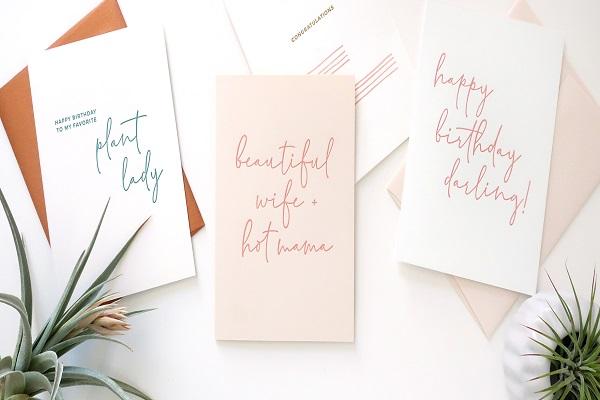 HAPPY BIRTHDAY
TO MY FAVORITE
plant
lady
CONGRATULATIONS
beautiful
wife +
hot mama
happy
birthday
darling!